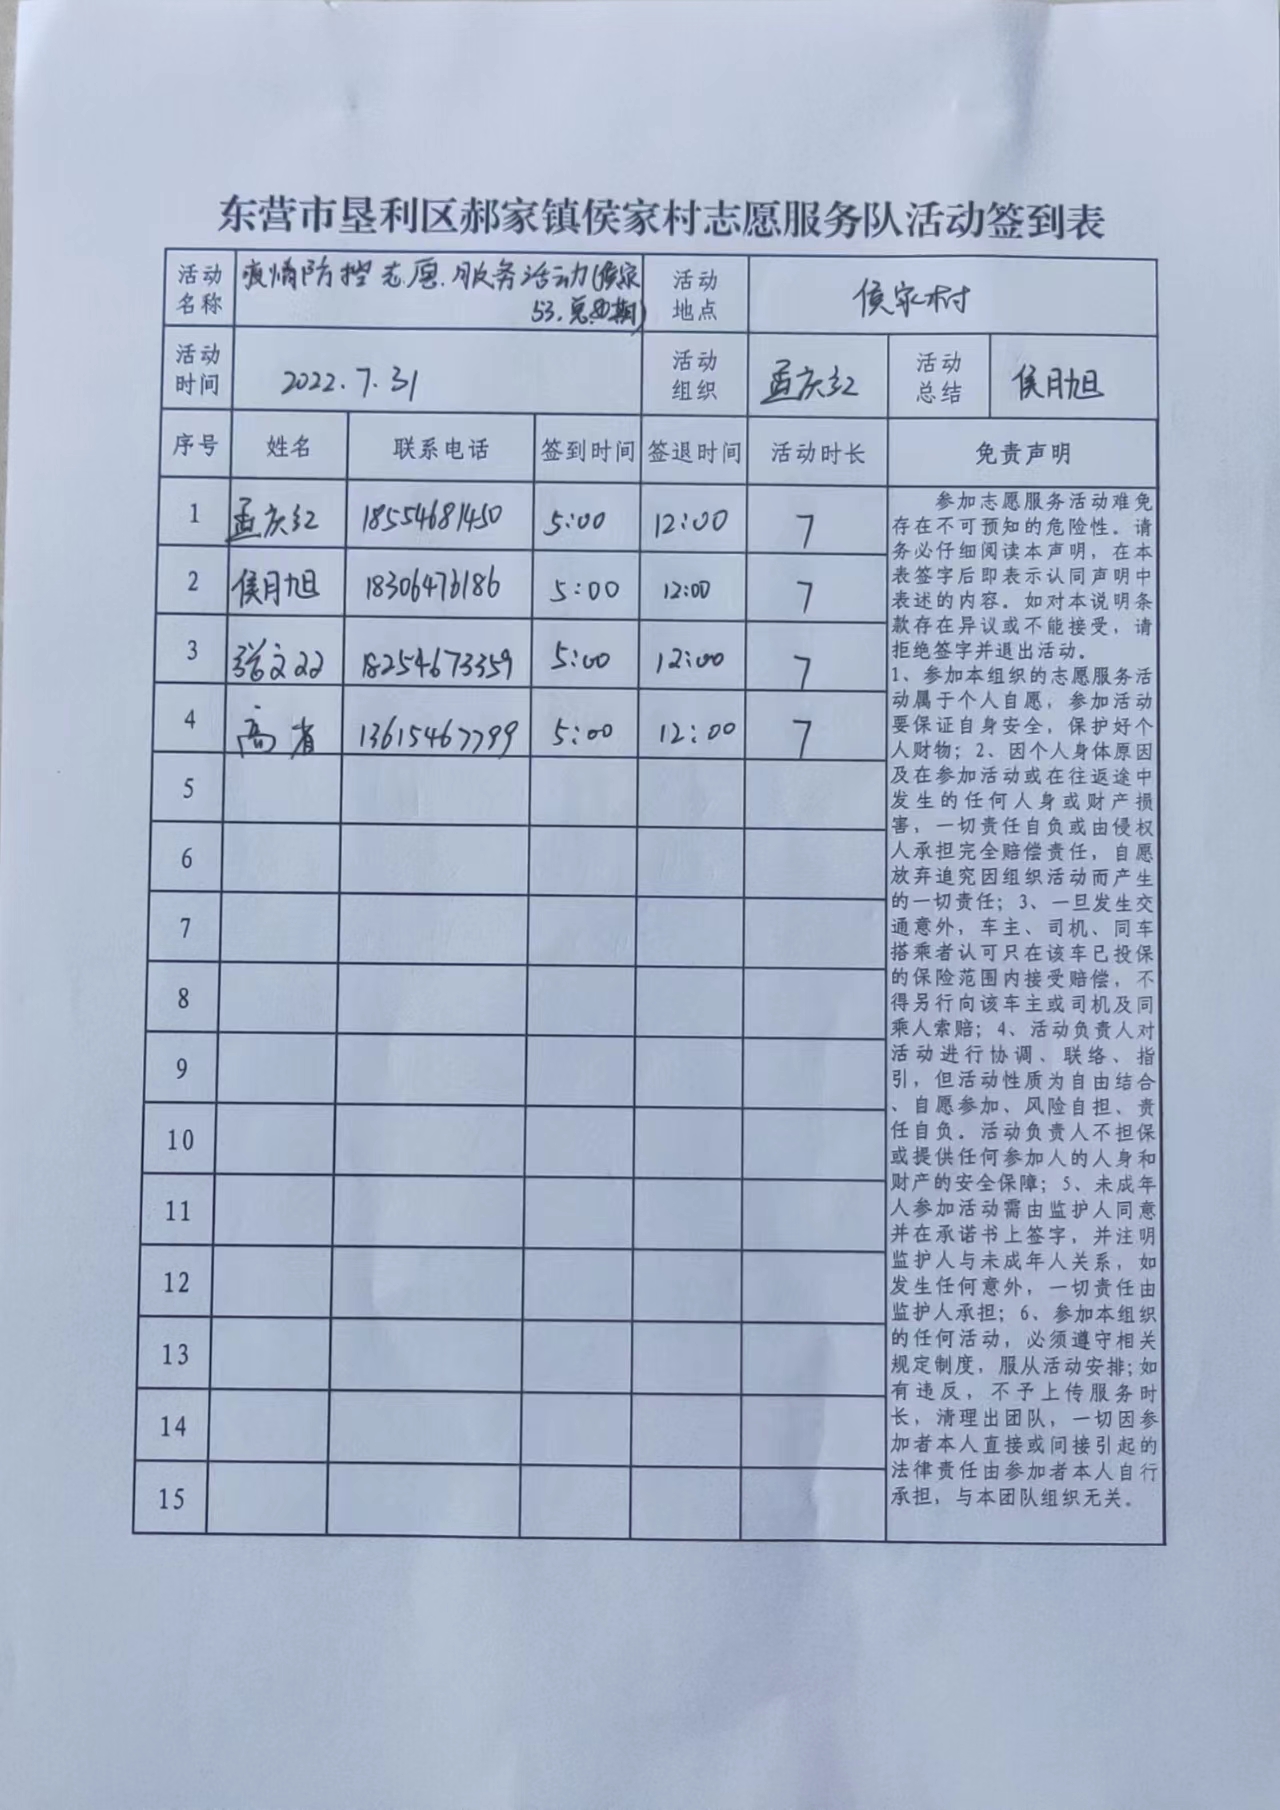 东营市垦利区郝家镇侯家村志愿服务队活动签到表
活动名称 疫情防控志愿服务活动(侯家53.总期) 活动地点 侯家村
活动时间 2022.7.31 活动组织 孟庆红 活动总结 侯月旭
序号 姓名 联系电话 签到时间 签退时间 活动时长 免责声明
1 孟庆红 18554681450 5:00 12:00 7
2 侯月旭 18306476186 5:00 12:00 7
3 张文双 18254673359 5:00 12:00 7
4 高省 13615467799 5:00 12:00 7
5
6
7
8
9
10
11
12
13
14
15
参加志愿服务活动难免
存在不可预知的危险性。请
务必仔细阅读本声明，在本
表签字后即表示认同声明中
表述的内容。如对本说明条
款存在异议或不能接受，请
拒绝签字并退出活动。
1、参加本组织的志愿服务活
动属于个人自愿，参加活动
要保证自身安全，保护好个
人财物；2、因个人身体原因
及在参加活动或在往返途中
发生的任何人身或财产损
害，一切责任自负或由侵权
人承担完全赔偿责任，自愿
放弃追究因组织活动而产生
的一切责任；3、一旦发生交
通意外，车主、司机、同车
搭乘者认可只在该车已投保
的保险范围内接受赔偿，不
得另行向该车主或司机及同
乘人索赔；4、活动负责人对
活动进行协调、联络、指
引，但活动性质为自由结合
、自愿参加、风险自担、责
任自负。活动负责人不担保
或提供任何参加人的人身和
财产的安全保障；5、未成年
人参加活动需由监护人同意
并在承诺书上签字，并注明
监护人与未成年人关系，如
发生任何意外，一切责任由
监护人承担；6、参加本组织
的任何活动，必须遵守相关
规定制度，服从活动安排;如
有违反，不予上传服务时
长，清理出团队，一切因参
加者本人直接或间接引起的
法律责任由参加者本人自行
承担，与本团队组织无关。